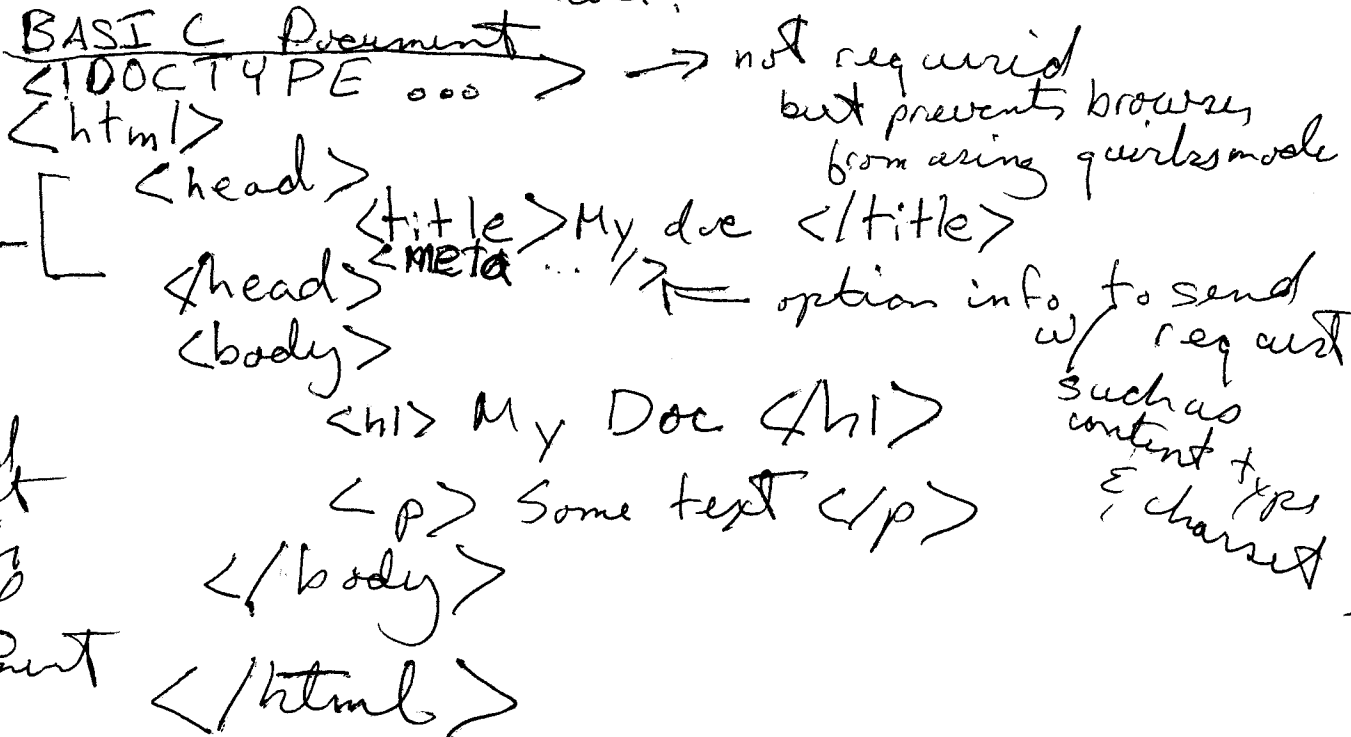 BASIC Document
<!DOCTYPE ... > → not required
but prevents browser
from using quirksmode
<html>
<head>
<title>My doc </title>
<meta ... />
← option info to send
w/ request
such as
content type
& charset
</head>
<body>
<h1> My Doc </h1>
<p> Some text </p>
</body>
</html>